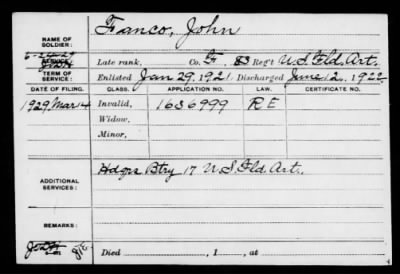 NAME OF SOLDIER: Fanco, John
6-24-29
SERVICE: Late rank, Co. F. 83 Reg't U.S. Fld. Art.
TERM OF SERVICE: Enlisted Jan 29, 1921. Discharged June 12, 1922
DATE OF FILING. CLASS. APPLICATION NO. LAW. CERTIFICATE NO.
1929 Mar 14 Invalid, 1636999 R E
Widow,
Minor,
ADDITIONAL SERVICES: Hdqrs Btry 17 U.S. Fld. Art.
REMARKS:
Died , 1 , at